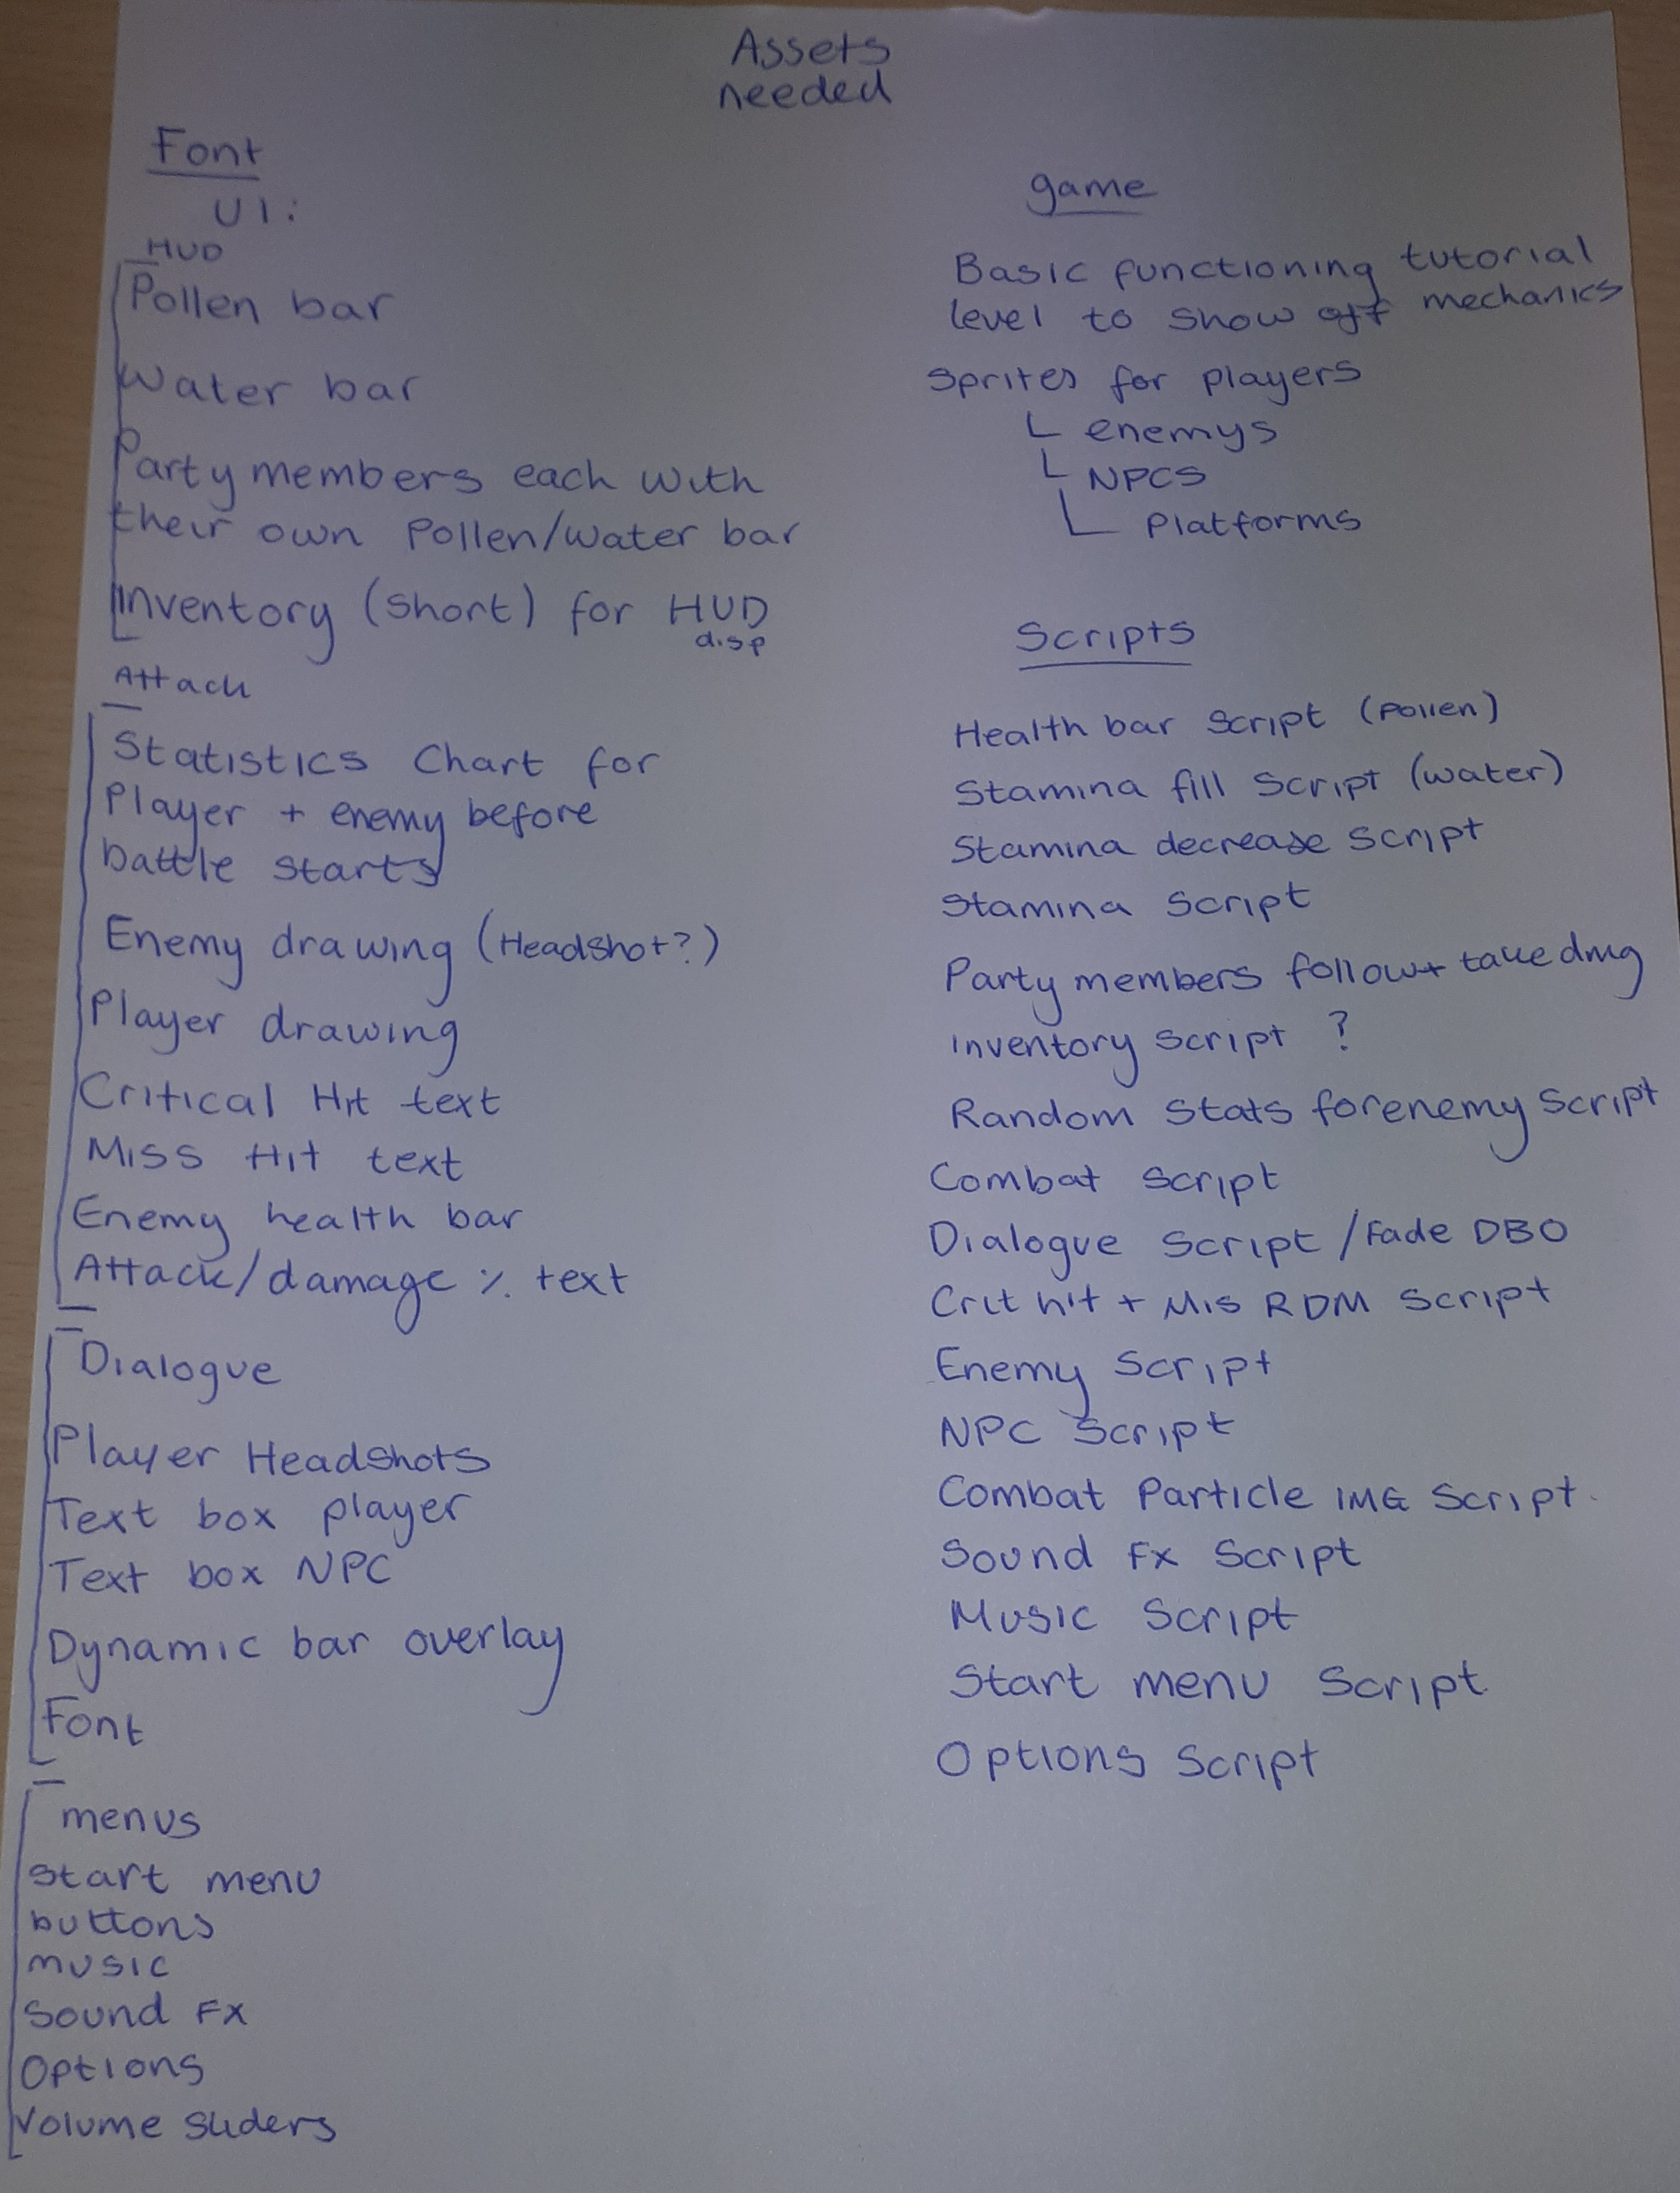 Assets
needed
Font
UI:
HUD
Pollen bar
Water bar
Party members each with
their own Pollen/Water bar
Inventory (short) for HUD
disp
Attack
Statistics Chart for
Player + enemy before
battle starts
Enemy drawing (Headshot?)
Player drawing
Critical Hit text
Miss Hit text
Enemy health bar
Attack/damage % text
Dialogue
Player Headshots
Text box player
Text box NPC
Dynamic bar overlay
Font
menus
Start menu
buttons
music
Sound FX
Options
Volume Sliders
game
Basic functioning tutorial
level to show off mechanics
Sprites for players
enemys
NPCS
Platforms
Scripts
Health bar Script (pollen)
Stamina fill Script (water)
Stamina decrease Script
Stamina Script
Party members follow + take dmg
Inventory Script ?
Random Stats for enemy Script
Combat Script
Dialogue Script / Fade DBO
Crit hit + Mis RDM Script
Enemy Script
NPC Script
Combat Particle IMG Script.
Sound FX Script
Music Script
Start menu Script
Options Script